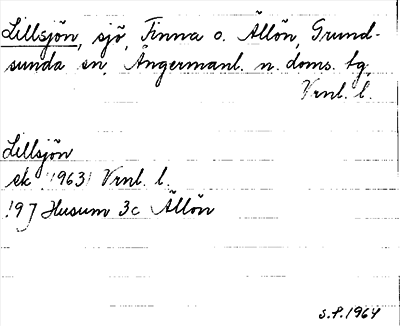 Lillsjön, sjö, Finna o. Ällön, Grund-
sunda sn, Ångermanl. n. doms. tg,
Vrnl. l.
Lillsjön
ek (1963) Vrnl. l.
19J Husum 3c Ällön
S.P. 1964